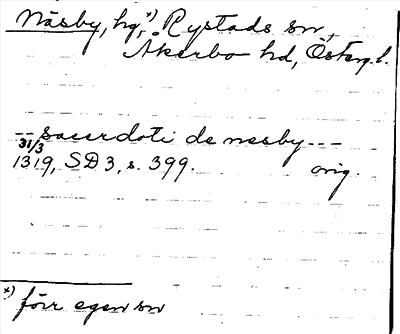 Näsby, hg,ˣ⁾ Rystads sn,
Åkerbo hd, Österg.l.
-- sacerdoti de nesby ---
31/3
1319, SD 3, s. 399. orig.
x) förr egen sn